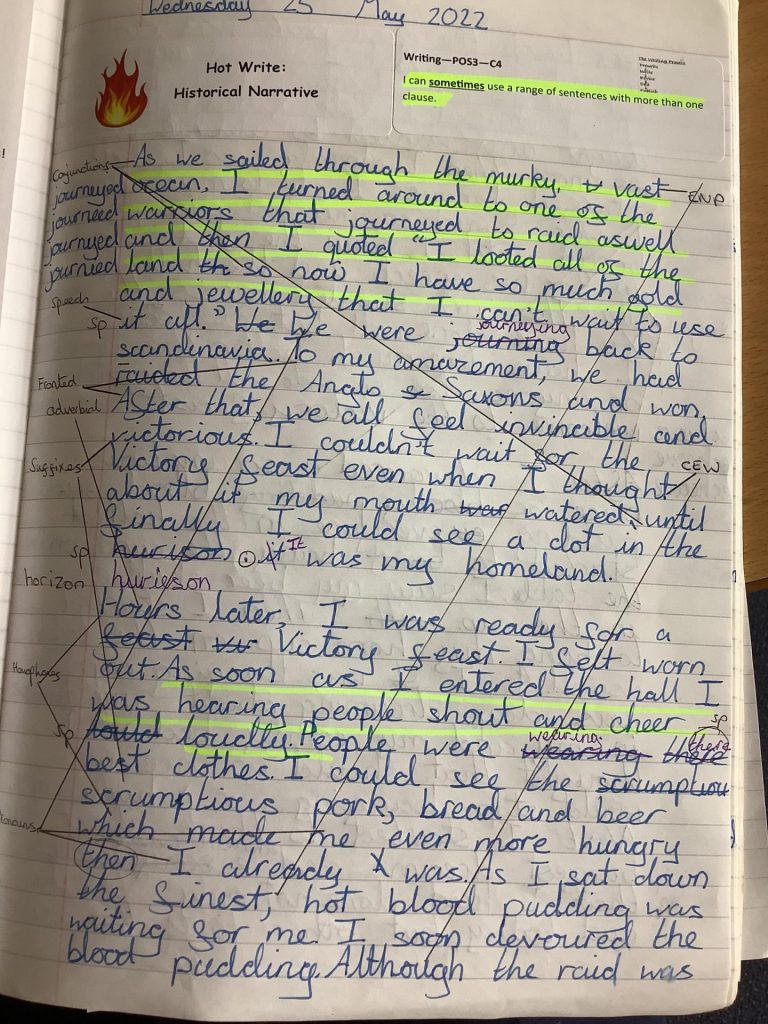 Wednesday 25 May 2022
Hot Write:
Historical Narrative
Writing—POS3—C4
The Writing Process
I can sometimes use a range of sentences with more than one
clause.
Conjunctions
journeyed
journeed
journyed
journied
speech
sp
Fronted
adverbial
Suffixes
sp
horizon
Homophones
sp
ENP
CEW
As we sailed through the murky, v vast
ocean, I turned around to one of the
warriors that journeyed to raid aswell
and then I quoted "I looted all of the
land th so now I have so much gold
and jewellery that I can't wait to use
it all." We We were journing journeying back to
scandinavia. To my amazement, we had
raided the Anglo S Saxons and won.
After that, we all feel invincible and
victorious. I couldn't wait for the
Victory feast even when I thought
about it my mouth was watered, until
finally I could see a dot in the
hurison. it It was my homeland.
hurieson
Hours later, I was ready for a
feast vu Victory feast. I felt worn
out. As soon as I entered the hall I
was hearing people shout and cheer
lould loudly. People were wearing wearing there there sp
best clothes. I could see the scrumptiou
scrumptious pork, bread and beer
which made me even more hungry
then I already was. As I sat down
the finest, hot blood pudding was
waiting for me. I soon devoured the
blood pudding. Although the raid was